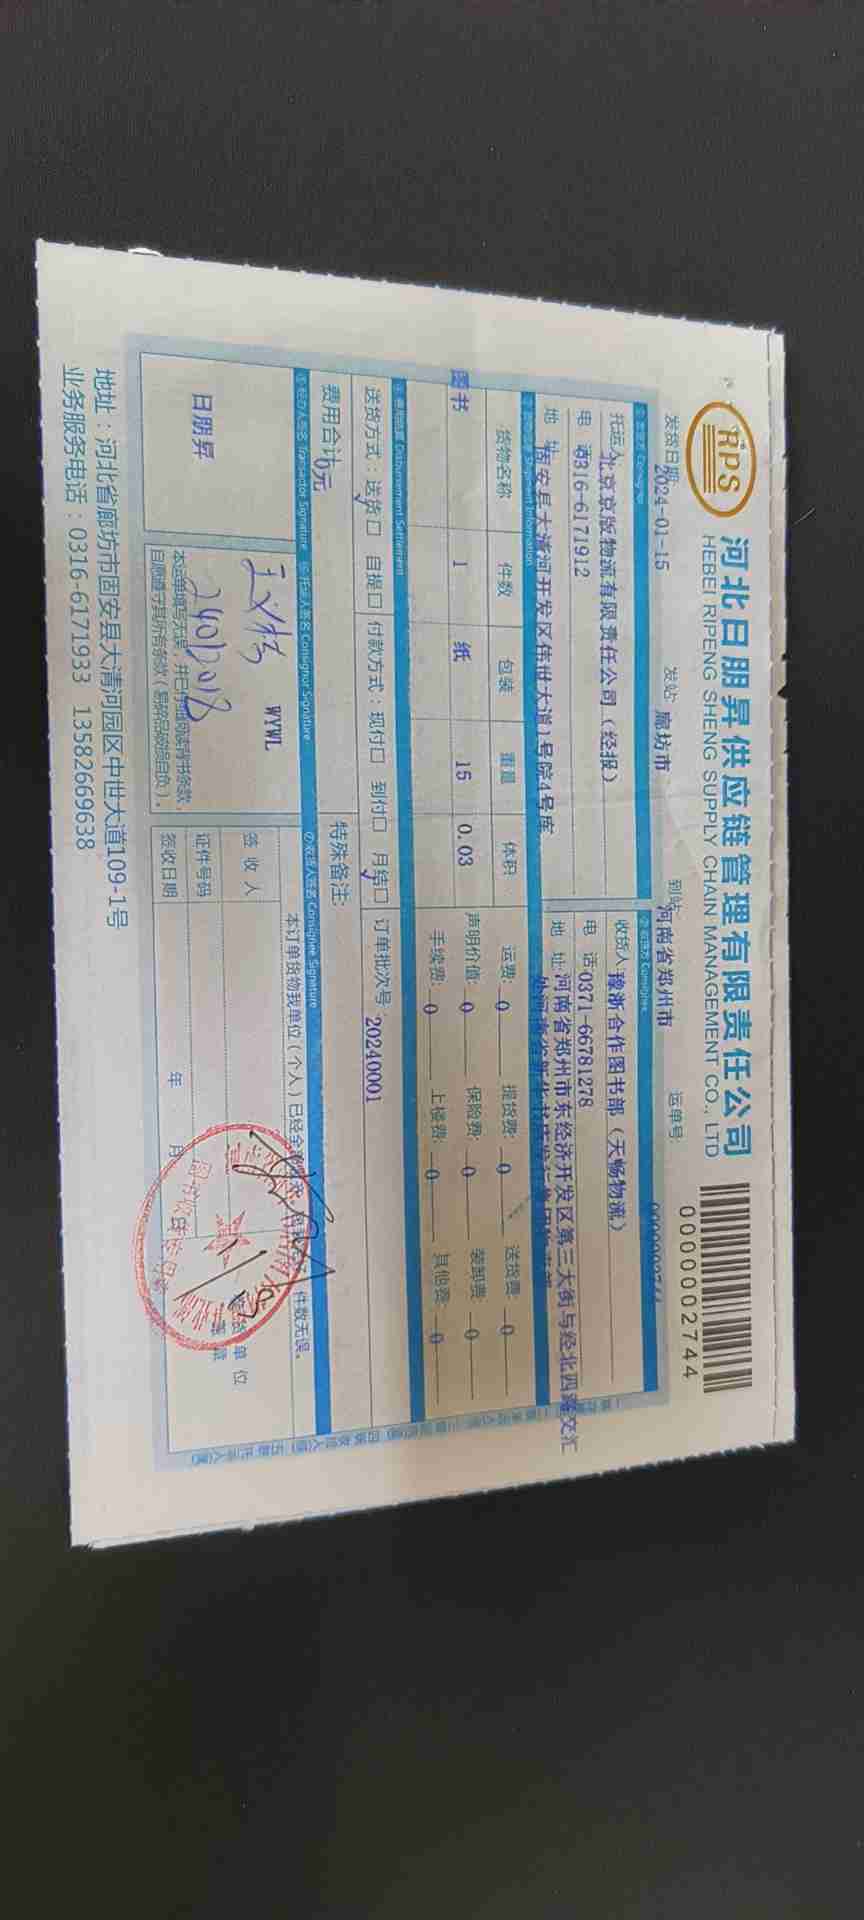 RPS
河北日朋昇供应链管理有限责任公司
HEBEI RIPENG SHENG SUPPLY CHAIN MANAGEMENT CO., LTD
0000002744
发货日期: 2024-01-15 发站: 廊坊市 到站: 河南省郑州市 运单号: 0000002744
托运人 北京京版物流有限责任公司（经报）
电 话 0316-6171912
地 址 固安县大清河开发区伟世大道1号院4号库
收货人 豫浙合作图书部（天畅物流）
电 话 0371-66781278
地 址 河南省郑州市东经济开发区第三大街与经北四路交汇
Shipment Information
货物名称 件数 包装 重量 体积
图书 1 纸 15 0.03
运费: 0 提货费: 0 送货费: 0
声明价值: 0 保险费: 0 装卸费: 0
手续费: 0 上楼费: 0 其他费: 0
Disbursement Settlement
送货方式: 送货口 自提口 付款方式: 现付口 到付口 月结口 订单批次号 20240001
费用合计: 0元 特殊备注:
⑤经办人签名 Transactor Signature ⑥托运人签名 Consignor Signature ⑦收货人签名 Consignee Signature
日朋昇
WYWL
本订单货物我单位（个人）已经全部 件数无误。
签收人
证件号码
签收日期 年 月 日
地址：河北省廊坊市固安县大清河园区中世大道109-1号
业务服务电话：0316-6171933 13582669638